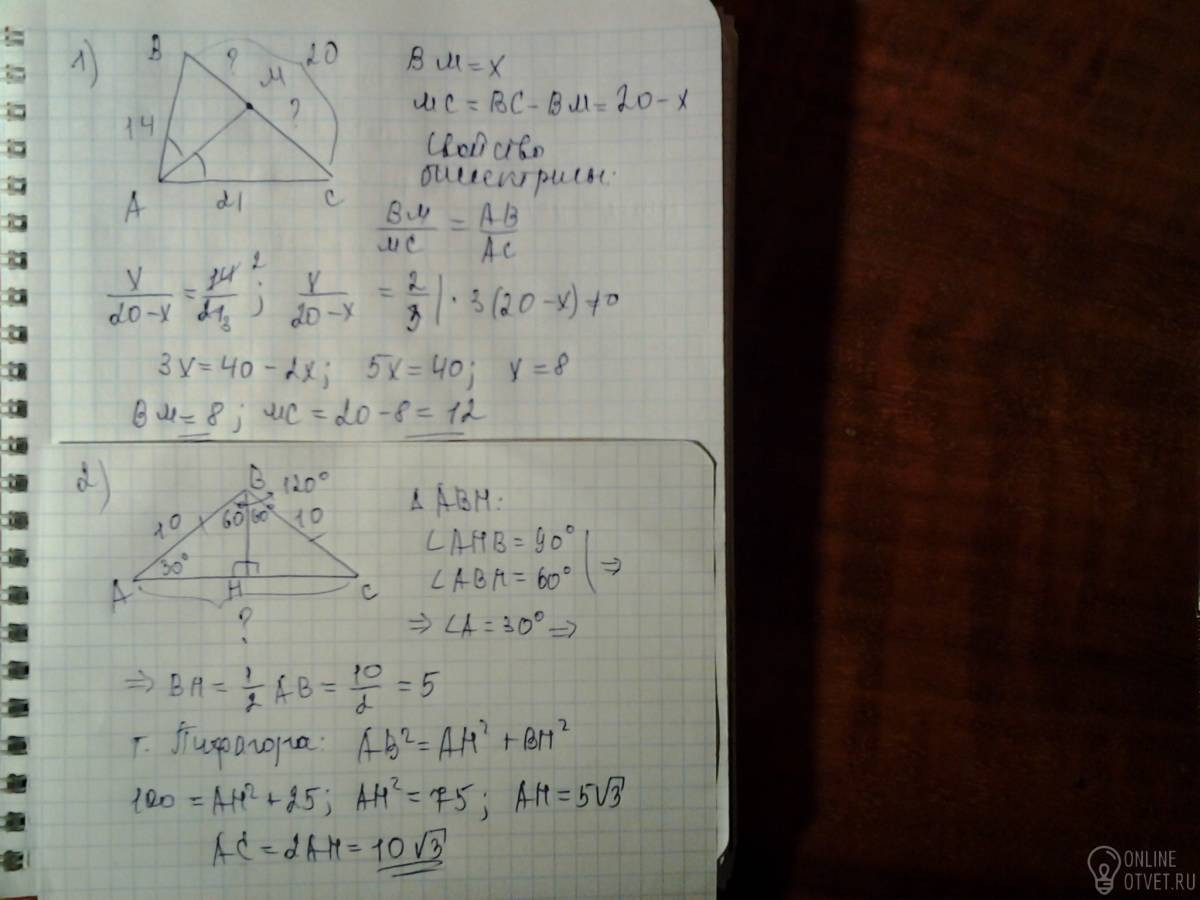 1)
B ? 20
M
?
14
A 21 C
BM = x
MC = BC - BM = 20 - x
Свойство
биссектрисы:
BM/MC = AB/AC
x/(20-x) = 14 2/21 3 ; x/(20-x) = 2/3 | · 3(20-x) ≠ 0
3x = 40 - 2x; 5x = 40; x = 8
BM = 8; MC = 20 - 8 = 12
2)
B 120°
10 60° 60° 10
30°
A H C
?
Δ ABH:
∠AHB = 90°
∠ABH = 60° ⇒
⇒ ∠A = 30° ⇒
⇒ BH = 1/2 AB = 10/2 = 5
т. Пифагора: AB² = AH² + BH²
100 = AH² + 25; AH² = 75; AH = 5√3
AC = 2AH = 10√3
ONLINE
OTVET.RU